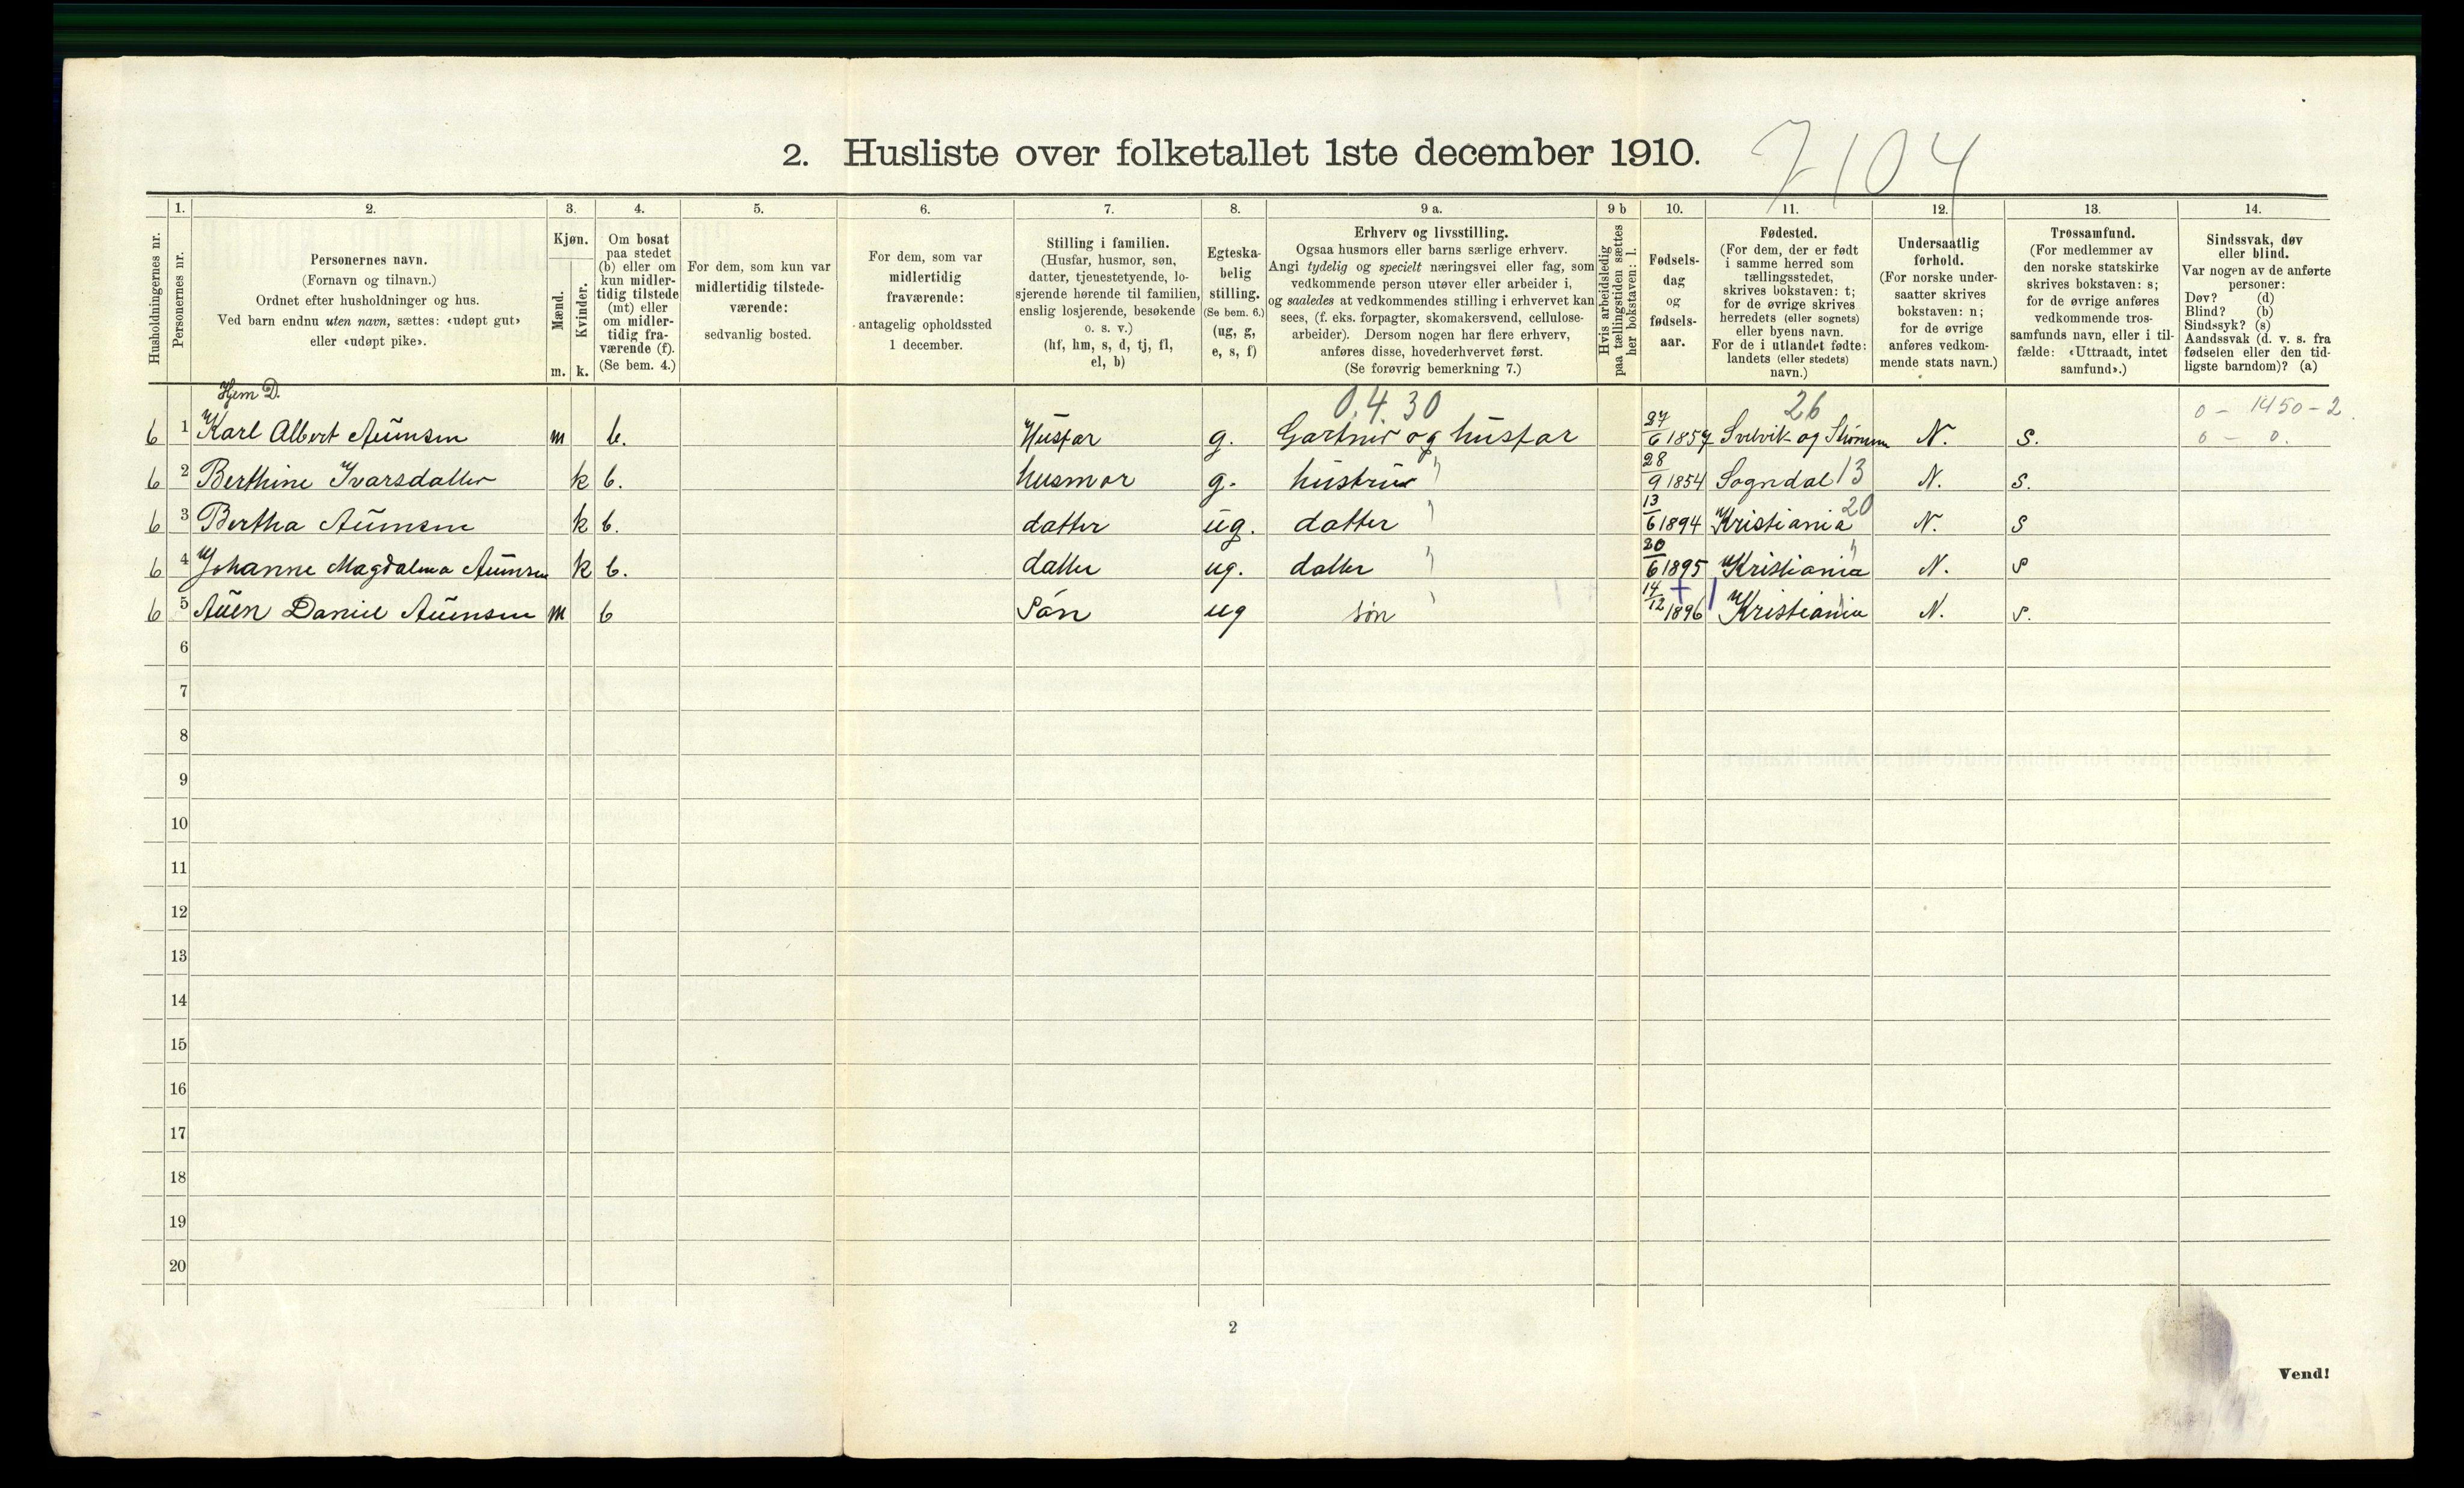 2. Husliste over folketallet 1ste december 1910.
7104
Husholdningernes nr.
1.
Personernes nr.
2.
Personernes navn.
(Fornavn og tilnavn.)
Ordnet efter husholdninger og hus.
Ved barn endnu uten navn, sættes: «udøpt gut»
eller «udøpt pike».
3.
Kjøn.
Mænd.
Kvinder.
m. k.
4.
Om bosat
paa stedet
(b) eller om
kun midler-
tidig tilstede
(mt) eller
om midler-
tidig fra-
værende (f).
(Se bem. 4.)
5.
For dem, som kun var
midlertidig tilstede-
værende:
sedvanlig bosted.
6.
For dem, som var
midlertidig
fraværende:
antagelig opholdssted
1 december.
7.
Stilling i familien.
(Husfar, husmor, søn,
datter, tjenestetyende, lo-
sjerende hørende til familien,
enslig losjerende, besøkende
o. s. v.)
(hf, hm, s, d, tj, fl,
el, b)
8.
Egteska-
belig
stilling.
(Se bem. 6.)
(ug, g,
e, s, f)
9 a.
Erhverv og livsstilling.
Ogsaa husmors eller barns særlige erhverv.
Angi tydelig og specielt næringsvei eller fag, som
vedkommende person utøver eller arbeider i,
og saaledes at vedkommendes stilling i erhvervet kan
sees, (f. eks. forpagter, skomakersvend, cellulose-
arbeider). Dersom nogen har flere erhverv,
anføres disse, hovederhvervet først.
(Se forøvrig bemerkning 7.)
9 b
Hvis arbeidsledig
paa tællingstiden sættes
her bokstaven: l.
10.
Fødsels-
dag
og
fødsels-
aar.
11.
Fødested.
(For dem, der er født
i samme herred som
tællingsstedet,
skrives bokstaven: t;
for de øvrige skrives
herredets (eller sognets)
eller byens navn.
For de i utlandet fødte:
landets (eller stedets)
navn.)
12.
Undersaatlig
forhold.
(For norske under-
saatter skrives
bokstaven: n;
for de øvrige
anføres vedkom-
mende stats navn.)
13.
Trossamfund.
(For medlemmer av
den norske statskirke
skrives bokstaven: s;
for de øvrige anføres
vedkommende tros-
samfunds navn, eller i til-
fælde: «Uttraadt, intet
samfund».)
14.
Sindssvak, døv
eller blind.
Var nogen av de anførte
personer:
Døv? (d)
Blind? (b)
Sindssyk? (s)
Aandssvak (d. v. s. fra
fødselen eller den tid-
ligste barndom)? (a)
Hjem D.
0.4.30 26 0 - 1450-2.
6 1 Karl Albert Aunsen m b. Husfar g. Gartner og husfar 27/6 1857 Svelvik og Strømm N. S. 0 - 0.
6 2 Berthine Ivarsdatter k b. husmor g. hustru " 28/9 1854 Sogndal 13 N. S.
6 3 Bertha Aunsen k b. datter ug. datter " 13/6 1894 Kristiania 20 N. S
6 4 Johanne Magdalena Aunsen k b. datter ug. datter " 20/6 1895 Kristiania " N. S
6 5 Auen Daniel Auensen m b Søn ug søn " 14/12 1896 Kristiania N. S.
6
7
8
9
10
11
12
13
14
15
16
17
18
19
20
2
Vend!